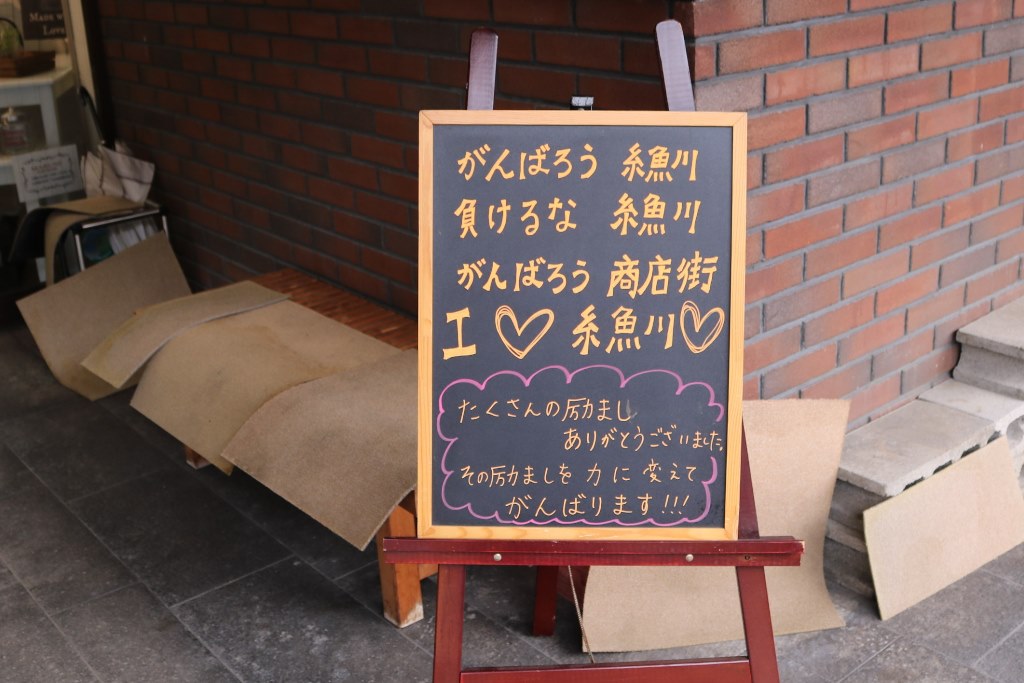 Made w
Love
がんばろう 糸魚川
負けるな 糸魚川
がんばろう 商店街
I ♡ 糸魚川♡
たくさんの励まし
ありがとうございました。
その励ましを 力に 変えて
がんばります!!!